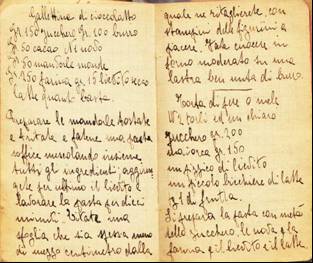 Gallettina di cioccolatto
gr. 150 zucchero gr. 100 burro
gr. 50 cacao N. 1 uovo
gr. 50 mandorle monde
gr. 250 farina gr. 15 lievito secco
latte quanto basta.
Preparare le mandorle tostate
e tritate e fatene una pasta
soffice mescolando insieme
tutti gli ingredienti, aggiun
gete per ultimo il lievito e
lavorare la pasta per dieci
minuti. Tirate una
sfoglia che sia spessa meno
di mezzo centimetro dalla
quale ne ritaglierete con
stampini delle figurine a
piacere. Fate cuocere in
forno moderato su una
lastra ben unta di burro.
Torta di pere o mele
N. 2 torli ed un chiaro
Zucchero gr. 200
gr. 150
un pizzico di lievito
un piccolo bicchiere di latte
di frutta.
Si prepara la pasta con metà
dello zucchero, le uova e la
farina e il lievito e il latte